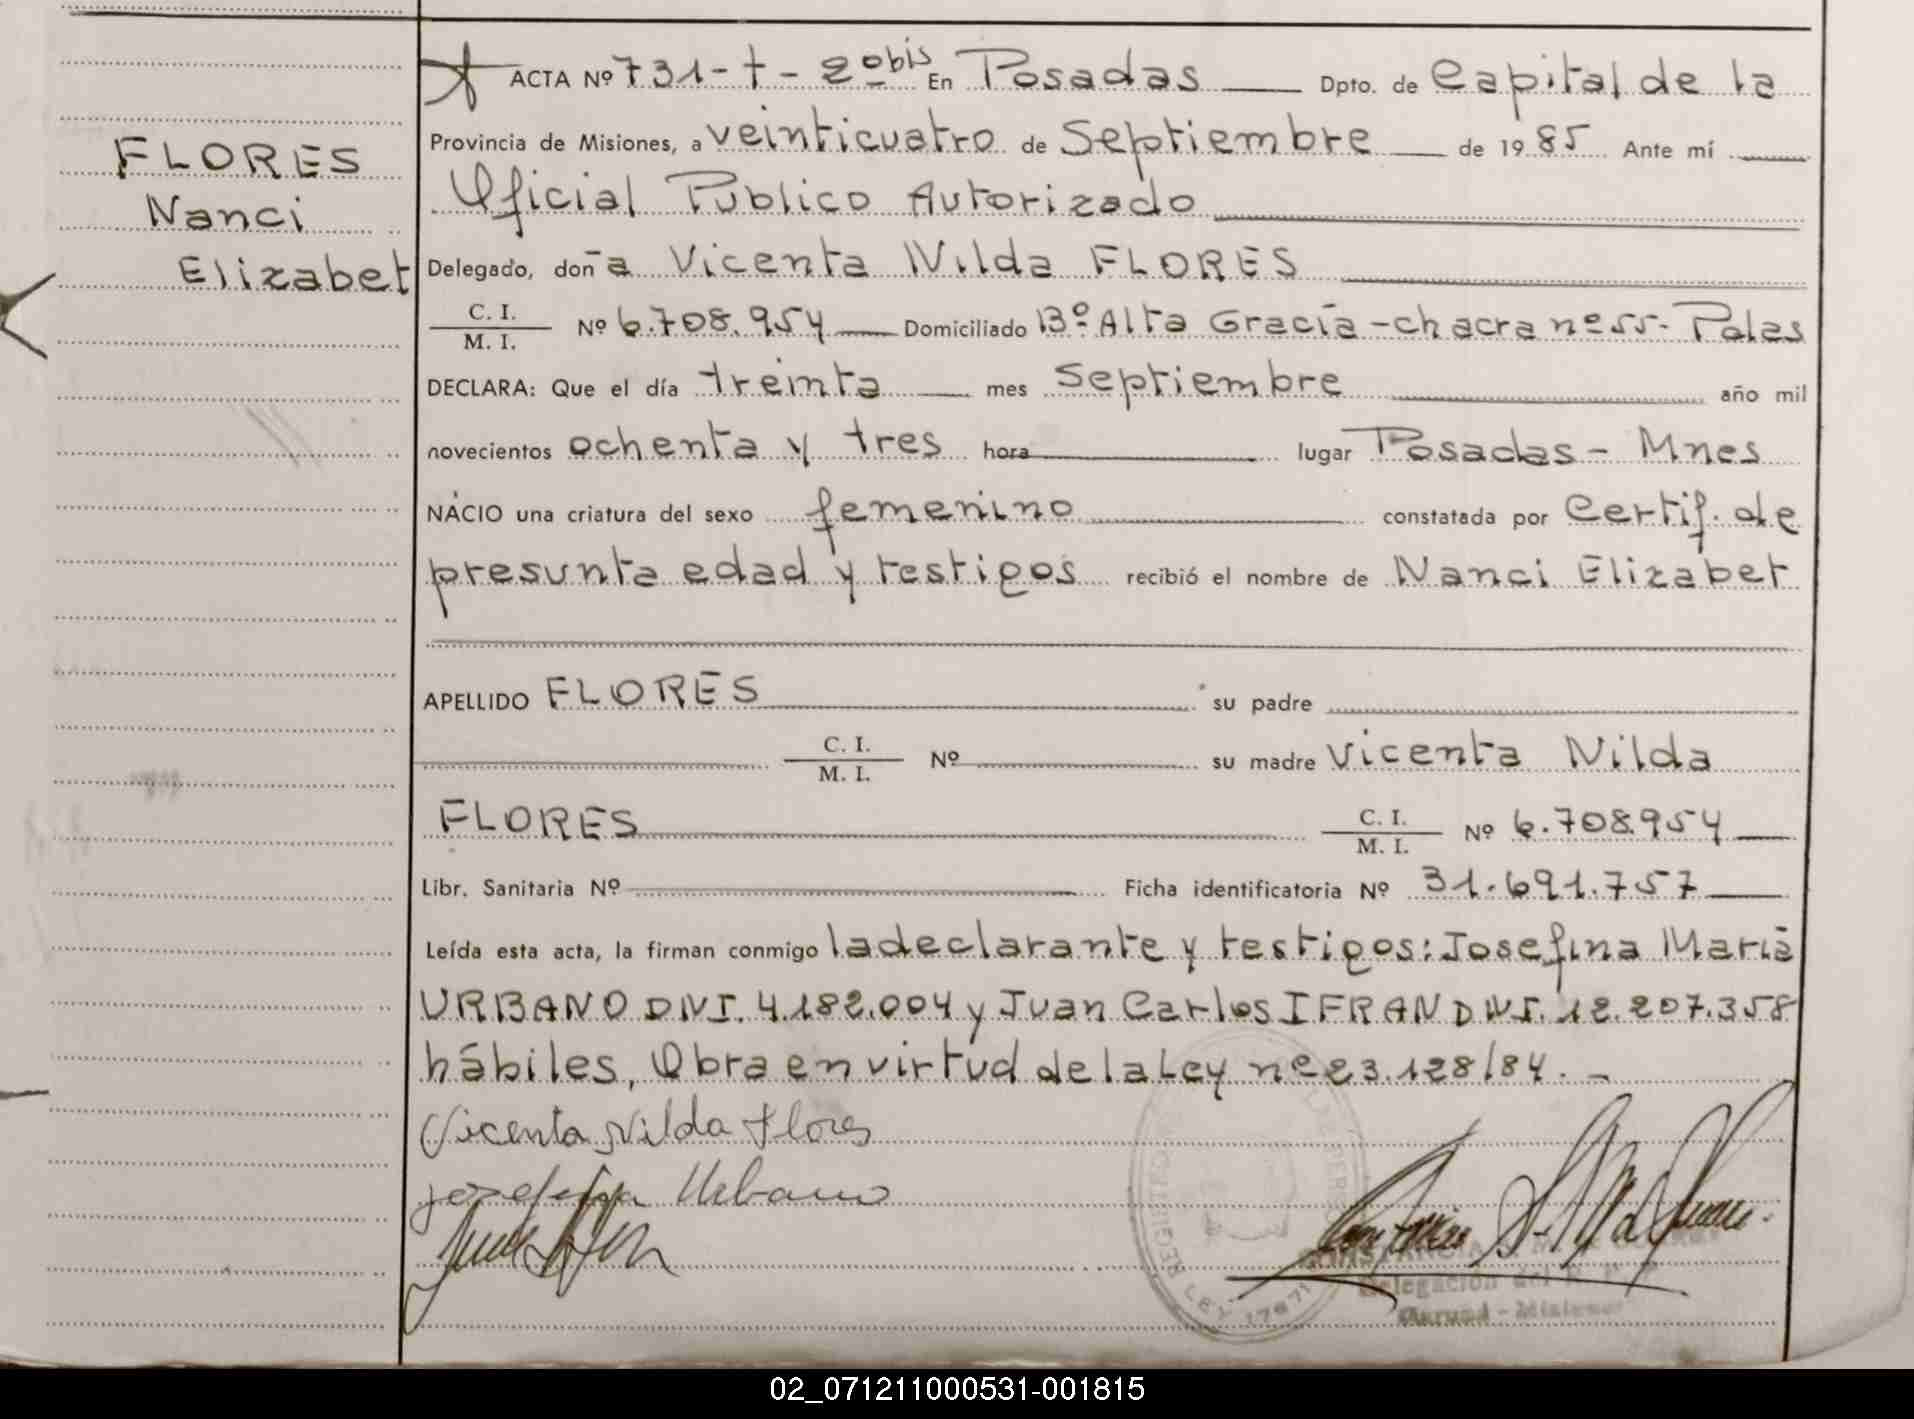 FLORES
Nanci
Elizabet
ACTA Nº 731-t-2º bis En Posadas Dpto. de Capital de la
Provincia de Misiones, a veinticuatro de Septiembre de 1985 Ante mí
Oficial Publico Autorizado
Delegado, don̄a Vicenta Nilda FLORES
C. I.
M. I.
Nº 6.708.954 Domiciliado Bº Alta Gracia - chacra nº 55 - Pdas
DECLARA: Que el día treinta mes Septiembre año mil
novecientos ochenta y tres hora lugar Posadas - Mnes
NACIO una criatura del sexo femenino constatada por Certif. de
presunta edad y testigos recibió el nombre de Nanci Elizabet
APELLIDO FLORES su padre
C. I.
M. I.
Nº su madre Vicenta Nilda
FLORES C. I.
M. I.
Nº 6.708.954
Libr. Sanitaria Nº Ficha identificatoria Nº 31.691.757
Leída esta acta, la firman conmigo la declarante y testigos: Josefina Maria
URBANO DNI. 4.182.004 y Juan Carlos IFRAN DNI. 12.207.358
hábiles, Obra en virtud de la Ley nº 23.128/84. -
Vicenta Nilda Flores
Josefina Urbano
02_071211000531-001815